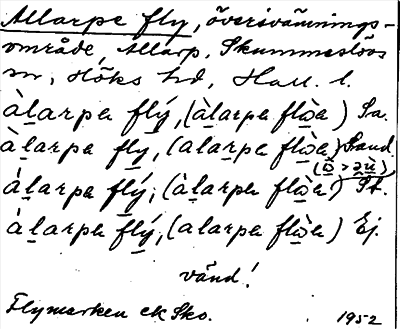 Allarpe fly, översvämnings-
område, Allarp, Skummeslövs
sn, Höks hd, Hall. l.
àl̲arpa flý, (àl̲arpa flὼ̲a) Sa.
àl̲arpa fly̲, (alarpa flὼ̲a) Sand.
àl̲arpa flý̲, (àl̲arpa flὼ̲a) St.
àl̲arpa flý̲, (alarpa flὼ̲a) Ej.
vänd!
Flymarken ek Sko.
1952